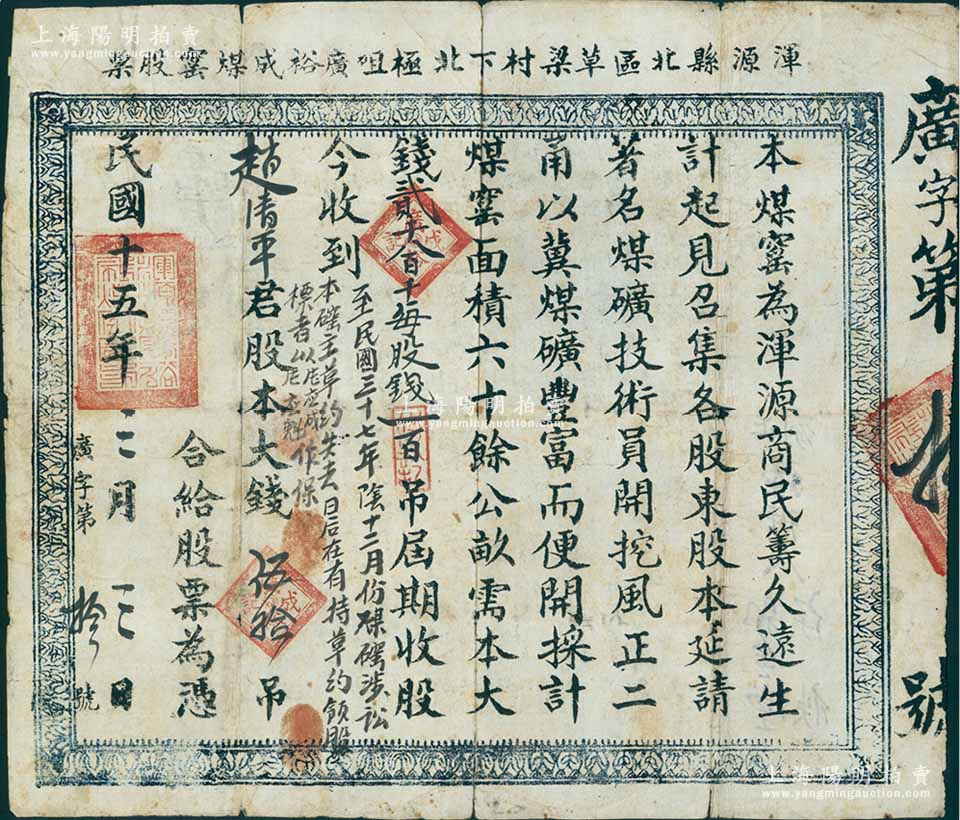 上海陽明拍賣
www.yangmingauction.com
渾源縣北區草梁村下北極咀廣裕成煤窰股票
廣字第
號
本煤窰為渾源商民籌久遠生
計起見召集各股東股本延請
著名煤礦技術員開挖風正二
甬以冀煤礦豐富而便開採計
煤窰面積六十餘公畝需本大
錢貳大百千每股錢一百吊屆期收股
今收到
至民國三十七年陰十二月份煤礦涉訟
本礦至草約失去日后在有持草約領股
作保
趙清平君股本大錢伍拾吊
合給股票為憑
民國十五年三二月二日
廣字第拾號
上海陽明拍賣
www.yangmingauction.com
上海陽明拍賣
www.yangmingauction.com